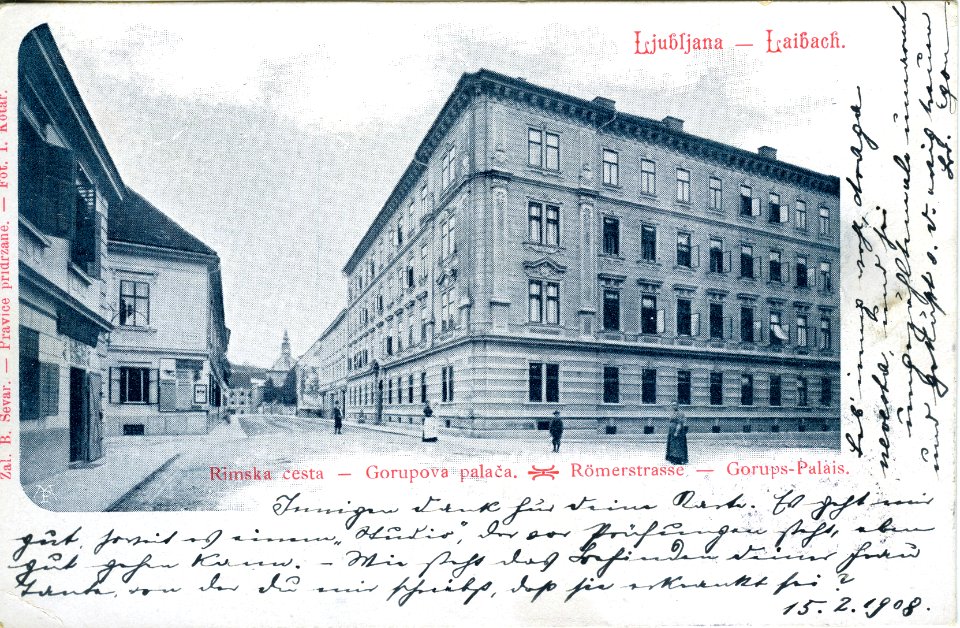 Ljubljana — Laibach.
Zal. B. Ševar. — Pravice pridržane. — Fot. I. Kotar.
Rimska cesta — Gorupova palača. Römerstrasse — Gorups-Palais.
Innigen Dank für deine Karte. Es geht mir
gut, soweit es einem „Studio", der vor Prüfungen steht, eben
gut gehen kann. – Wie steht das Befinden deiner Frau
Tante, von der du mir schreibst, daß sie erkrankt sei?
15. 2. 1908.
Sei innig, süße draga
nevesta, und sei
innigst umarmt
und geküßt v. d.
Egon